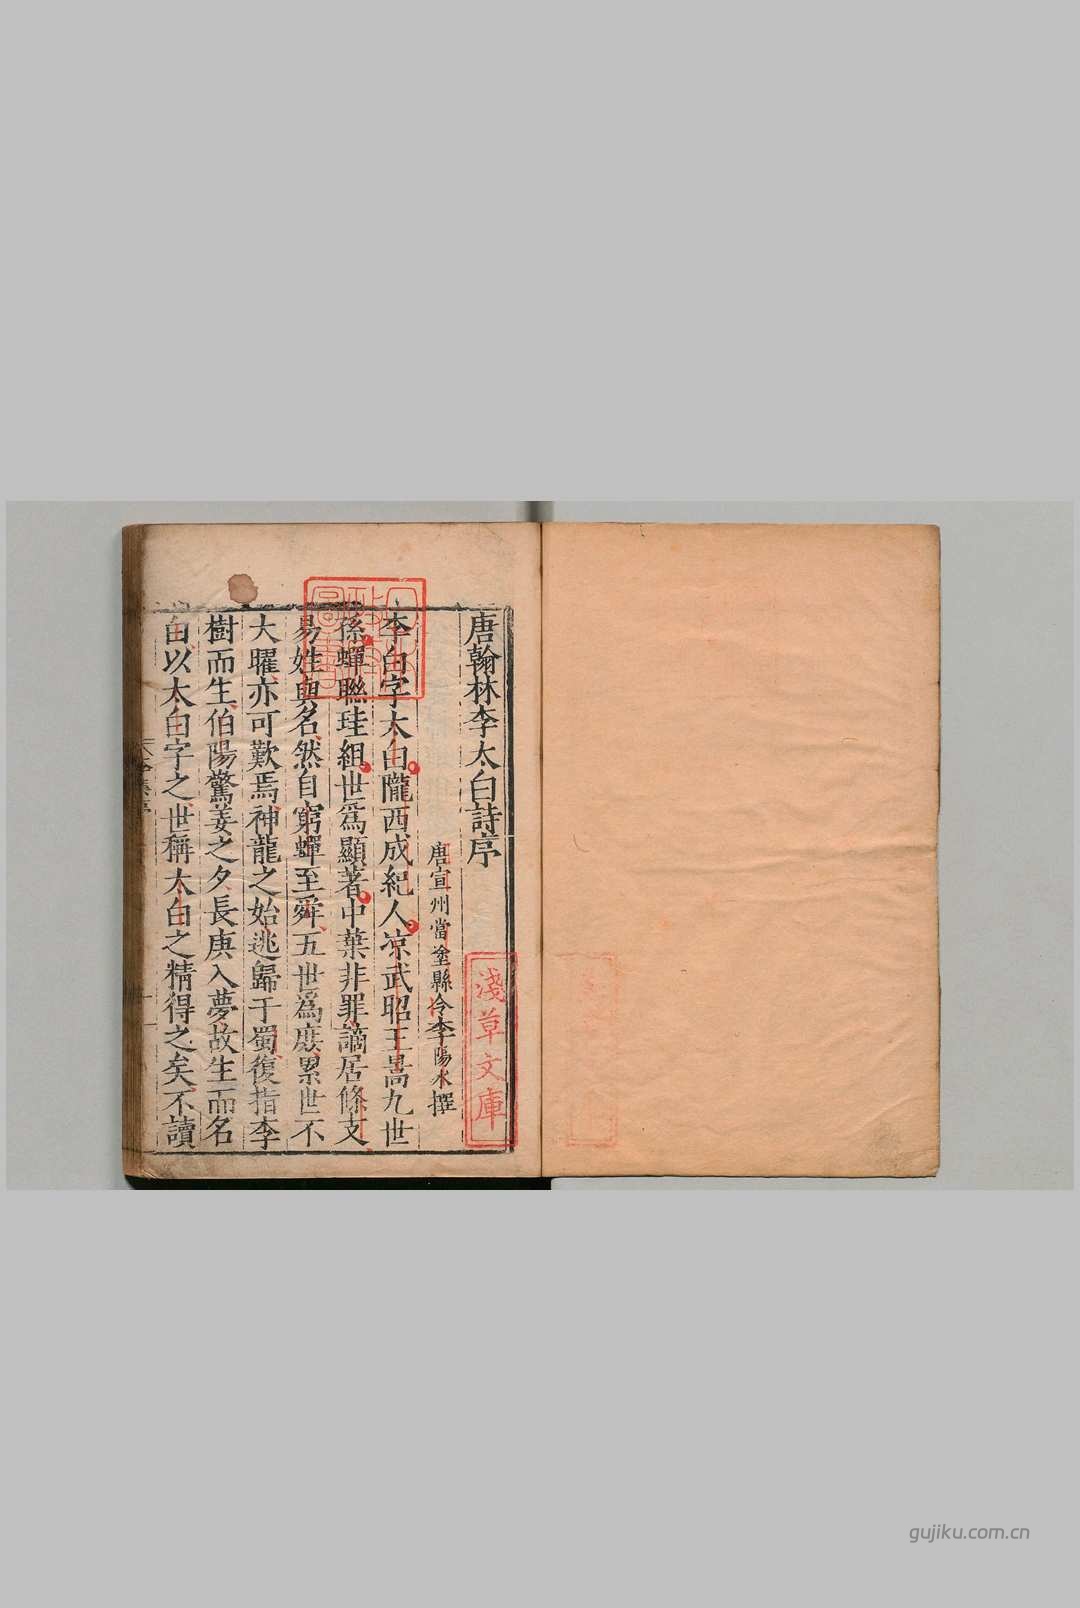 唐翰林李太白詩序
唐宣州當塗縣令李陽氷撰
李白字太白隴西成紀人凉武昭王暠九世
孫蟬聯珪組世爲顯著中葉非罪謫居條支
易姓與名然自窮蟬至舜五世爲庶累世不
大曜亦可歎焉神龍之始逃歸于蜀復指李
樹而生伯陽驚姜之夕長庚入夢故生而名
白以太白字之世稱太白之精得之矣不讀
淺草文庫
gujiku.com.cn